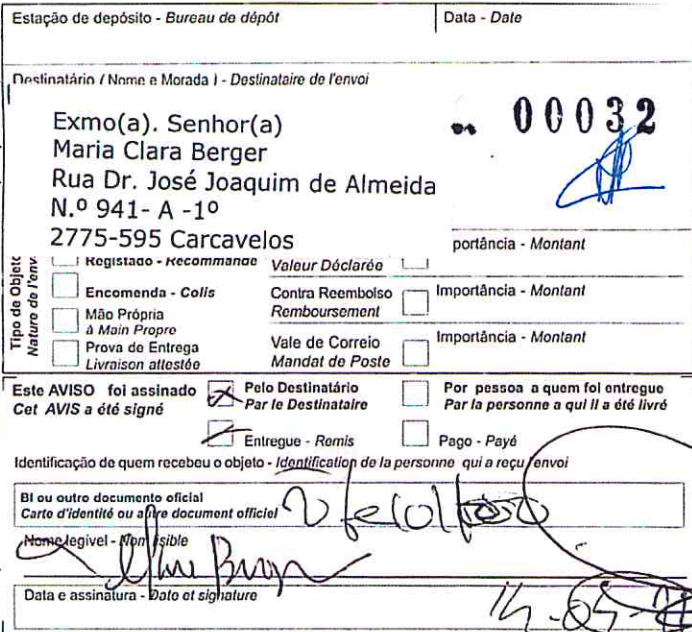 Estação de depósito - Bureau de dépôt
Data - Date
Destinatário ( Nome e Morada ) - Destinataire de l'envoi
Exmo(a). Senhor(a)
Maria Clara Berger
Rua Dr. José Joaquim de Almeida
N.º 941- A -1º
2775-595 Carcavelos
00032
portância - Montant
Tipo de Objeto
Nature de l'env.
Registado - Recommandé
Valeur Déclarée
Encomenda - Colis
Contra Reembolso
Remboursement
Importância - Montant
Mão Própria
à Main Propre
Prova de Entrega
Livraison attestée
Vale de Correio
Mandat de Poste
Importância - Montant
Este AVISO foi assinado
Cet AVIS a été signé
Pelo Destinatário
Par le Destinataire
Por pessoa a quem foi entregue
Par la personne a qui il a été livré
Entregue - Remis
Pago - Payé
Identificação de quem recebeu o objeto - Identification de la personne qui a reçu l'envoi
BI ou outro documento oficial
Carte d'identité ou autre document officiel
Nome legível - Nom lisible
Data e assinatura - Date et signature